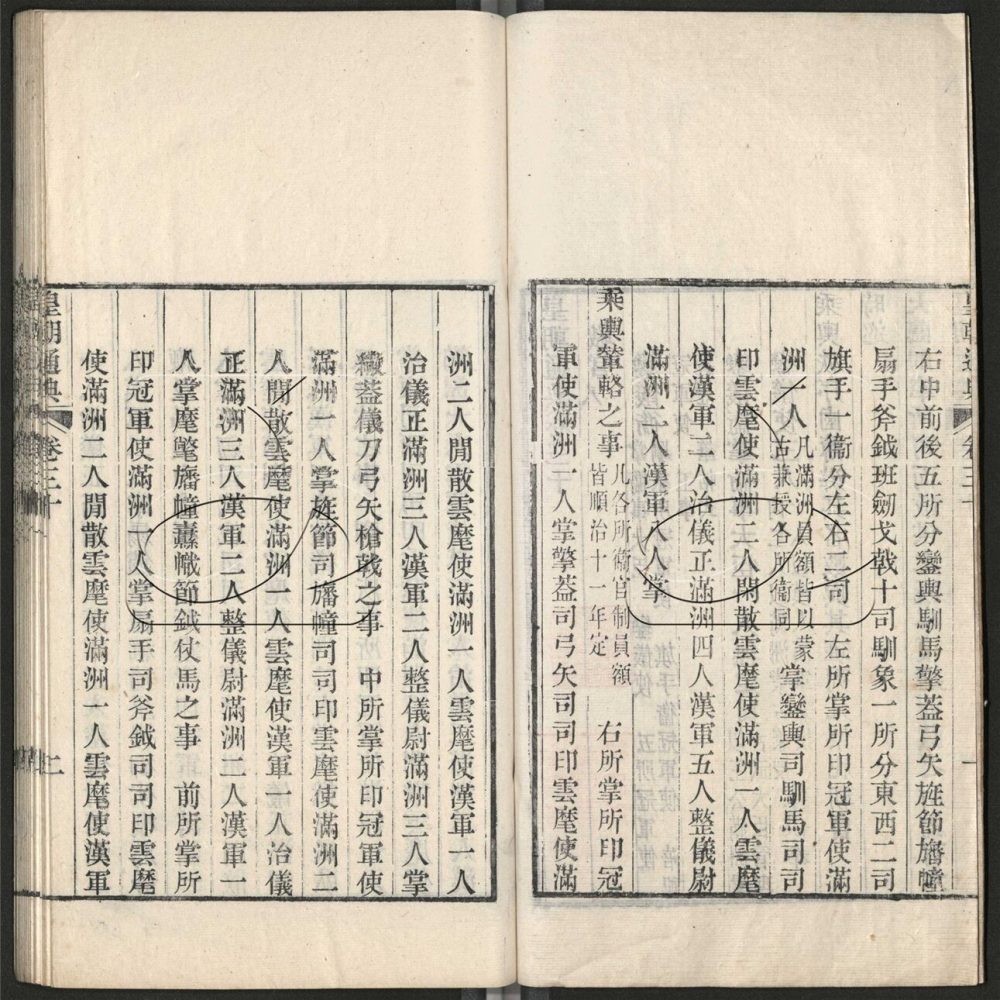 右中前後五所分鑾輿馴馬擎葢弓矢旌節旛幢
扇手斧鉞班劒戈戟十司馴象一所分東西二司
旗手一衞分左右二司 左所掌所印冠軍使滿
洲一人
凡滿洲員額皆以蒙
古兼授各所衞同
掌鑾輿司馴馬司司
印雲麾使滿洲二人閒散雲麾使滿洲一人雲麾
使漢軍二人治儀正滿洲四人漢軍五人整儀尉
滿洲二人漢軍八人掌
乘輿輦輅之事
凡各所衞官制員額
皆順治十一年定
右所掌所印冠
軍使滿洲一人掌擎葢司弓矢司司印雲麾使滿
洲二人閒散雲麾使滿洲一人雲麾使漢軍一人
治儀正滿洲三人漢軍二人整儀尉滿洲三人掌
繖葢儀刀弓矢槍戟之事 中所掌所印冠軍使
滿洲一人掌旌節司旛幢司司印雲麾使滿洲二
人閒散雲麾使滿洲一人雲麾使漢軍一人治儀
正滿洲三人漢軍二人整儀尉滿洲二人漢軍一
人掌麾氅旛幢纛幟節鉞仗馬之事 前所掌所
印冠軍使滿洲一人掌扇手司斧鉞司司印雲麾
使滿洲二人閒散雲麾使滿洲一人雲麾使漢軍
皇朝通典 卷三十 二